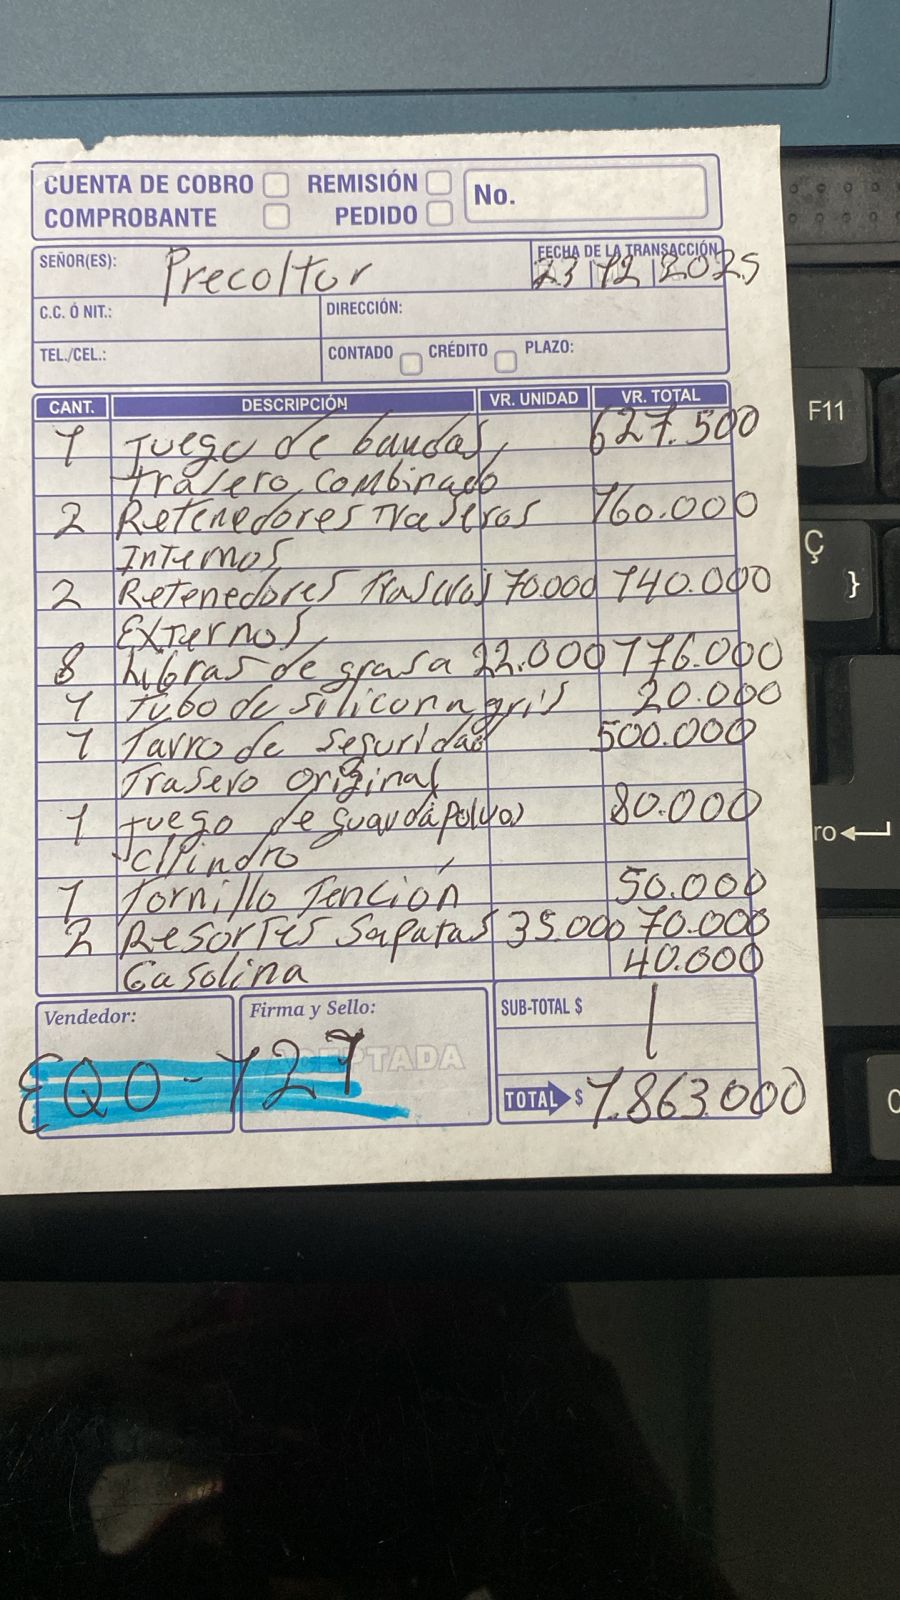 CUENTA DE COBRO REMISIÓN No.
COMPROBANTE PEDIDO
SEÑOR(ES): Precoltur FECHA DE LA TRANSACCIÓN 23 12 2025
C.C. Ó NIT.: DIRECCIÓN:
TEL./CEL.: CONTADO CRÉDITO PLAZO:
CANT. DESCRIPCIÓN VR. UNIDAD VR. TOTAL
1 Juego de bandas, 627.500
trasero combinado
2 Retenedores Traseros 160.000
Internos,
2 Retenedores Traseros 70.000 140.000
Externos,
8 libras de grasa 22.000 176.000
1 Tubo de silicona gris 20.000
1 Tarro de seguridad 500.000
Trasero original
1 Juego de guardapolvos 80.000
cilindro
1 Tornillo Tención 50.000
2 Resortes Sapatas 35.000 70.000
Gasolina 40.000
Vendedor: Firma y Sello: SUB-TOTAL $
EQO-727 ACEPTADA
TOTAL $ 1.863.000
F11
Ç
}
ro